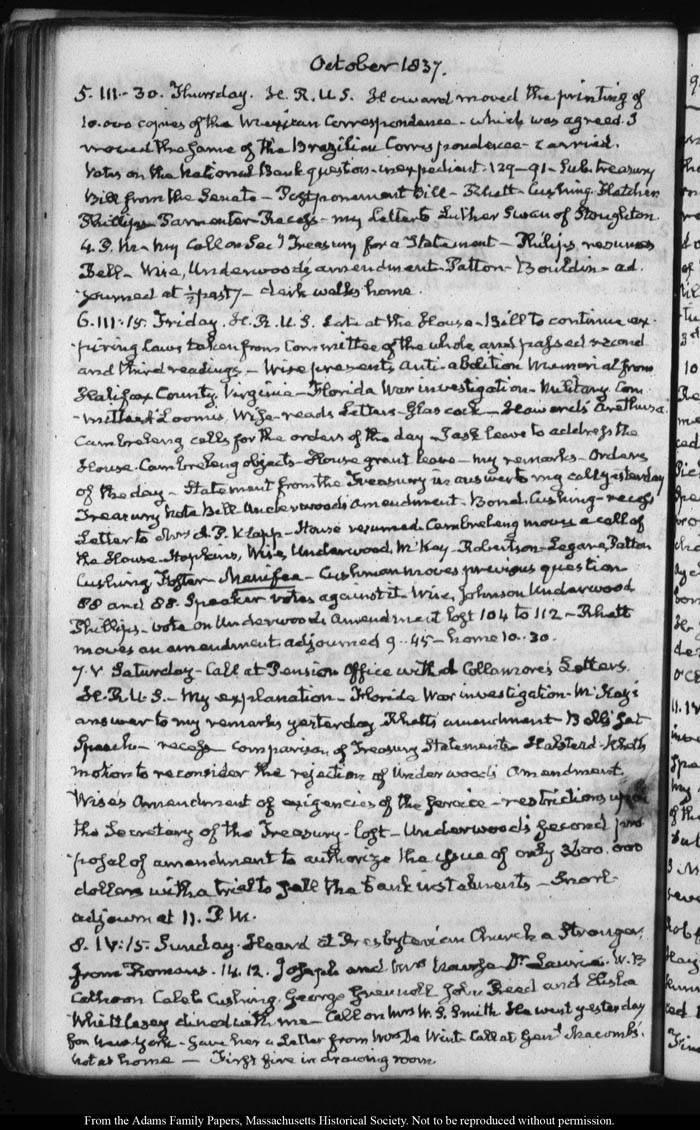 October 1837.
5. III.-30. Thursday. H. R. U. S. Howard moved the printing of
10.000 copies of the Mexican Correspondence - which was agreed. I
moved the same of the Brazilian Correspondence - carried.
Votes on the National Bank question - inexpedient. 129-91 - Sub. treasury
Bill from the Senate - Postponement Bill - Rhett - Cushing. Fletcher
Phillips Parmenter - Recess - my Letter to Luther Swan of Stoughton
4. P. M - my Call on Sec.y Treasury for a Statement - Philips, resumes
Bell - Wise, Underwood's amendment - Patton - Bouldin - ad
journed at ½ past 7 - dark walk home.
6. III:15. Friday. H. R. U. S. Late at the House - Bill to continue ex-
-piring laws taken from Committee of the whole and passed second
and third readings - Wise presents Anti-abolition Memorial from
Halifax County Virginia - Florida War investigation - Military Com
-mittee - Loomis, Wise - reads Letters - Glascock - Howard's Arethusa.
Cambreleng calls for the orders of the day - I ask leave to address the
House. Cambreleng objects - House grant leave - my remarks - Orders
of the day - Statement from the Treasury in answer to my call yesterday
Treasury Note Bill Underwood's Amendment. Bond. Cushing - recess
Letter to A. P. Klapp - House resumed Cambreleng moves a call of
the House - Hopkins, Wise, Underwood, McKay - Robertson - Legare, Patton
Cushing, Foster - Menifee - Cushman moves previous question
88 and 88. Speaker votes against it - Wise, Johnson Underwood
Phillips - vote on Underwood's Amendment lost 104 to 112 - Rhett
moves an amendment adjourned 9..45 - home 10..30.
7. V Saturday - Call at Pension Office with Collamore's Letters.
H. R. U. S. - My explanation - Florida War investigation - McKay's
answer to my remarks yesterday Rhett's amendment - Bell's
Speech - recess - comparison of Treasury Statements - Halstead - Rhett's
motion to reconsider the rejection of Underwood's Amendment.
Wise's Amendment of exigencies of the service - restrictions upon
the Secretary of the Treasury - lost - Underwood's second pro
-posal of amendment to authorize the issue of only 3600.000
dollars with a trial to sell the bank instalments -
adjourn at 11. P. M.
8. IV:15. Sunday. Heard at Presbyterian Church a Stranger,
from Romans. 14. 12. Joseph and Mrs Dr. Laurie. W. B
Calhoon Caleb Cushing, George Grennell John Reed and Elisha
Whittlesey dined with me - Call on Mrs W. S. Smith He went yesterday
for New-York - Gave her a Letter from Mrs De Wint Call at Gen.l Macomb's.
not at home - First fire in drawing room
From the Adams Family Papers, Massachusetts Historical Society. Not to be reproduced without permission.